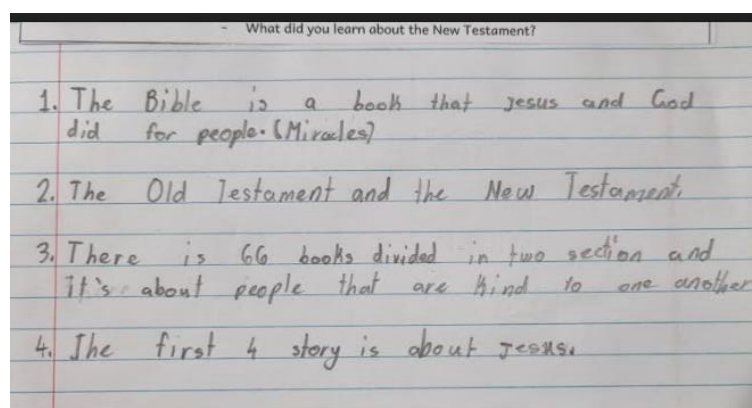 - What did you learn about the New Testament?
1. The Bible is a book that Jesus and God
did for people. (Miracles)
2. The Old Testament and the New Testament.
3. There is 66 books divided in two section and
it's about people that are kind to one another
4. The first 4 story is about Jesus.